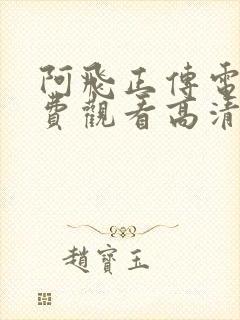 阿飛正傳電
費觀看高清
趙寶玉